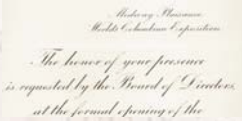 Midway Plaisance
World's Columbian Exposition
The honor of your presence
is requested by the Board of Directors,
at the formal opening of the